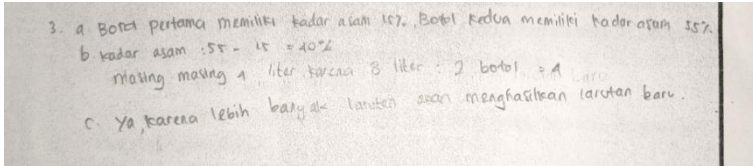 3. a Botol pertama memiliki kadar asam 15%, Botol kedua memiliki kadar asam 55%.
b. kadar asam : 55 - 15 = 40%
masing masing 4 liter karena 8 liter : 2 botol = 4
c. Ya, karena lebih banyak larutan akan menghasilkan larutan baru.